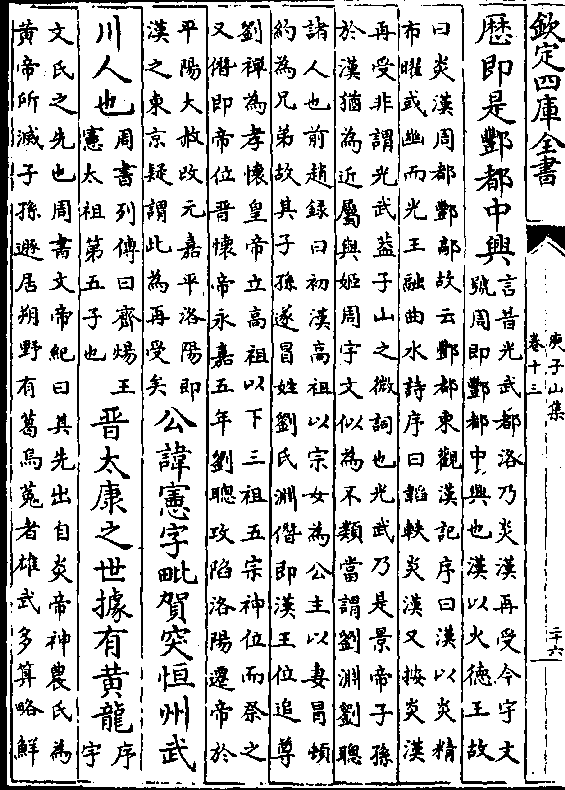 欽定四庫全書
庾子山集
卷十三
二十六
厯即是酆都中興
言昔光武都洛乃炎漢再受今宇文
號周即酆都中興也漢以火德王故
曰炎漢周都酆鄗故云酆都東觀漢記序曰漢以炎精
布曜或幽而光王融曲水詩序曰韜軼炎漢又按炎漢
再受非謂光武蓋子山之微詞也光武乃是景帝子孫
於漢猶為近屬與姬周宇文似為不類當謂劉淵劉聰
諸人也前趙録曰初漢高祖以宗女為公主以妻冒頓
約為兄弟故其子孫遂冒姓劉氏淵僭即漢王位追尊
劉禪為孝懷皇帝立高祖以下三祖五宗神位而祭之
又僭即帝位晉懷帝永嘉五年劉聰攻陷洛陽遷帝於
平陽大赦改元嘉平洛陽即
漢之東京疑謂此為再受矣
公諱憲字毗賀突恒州武
川人也
周書列傳曰齊煬王
憲太祖第五子也
晉太康之世據有黄龍
序
宇
文氏之先也周書文帝紀曰其先出自炎帝神農氏為
黄帝所滅子孫遯居朔野有葛烏菟者雄武多算略鮮